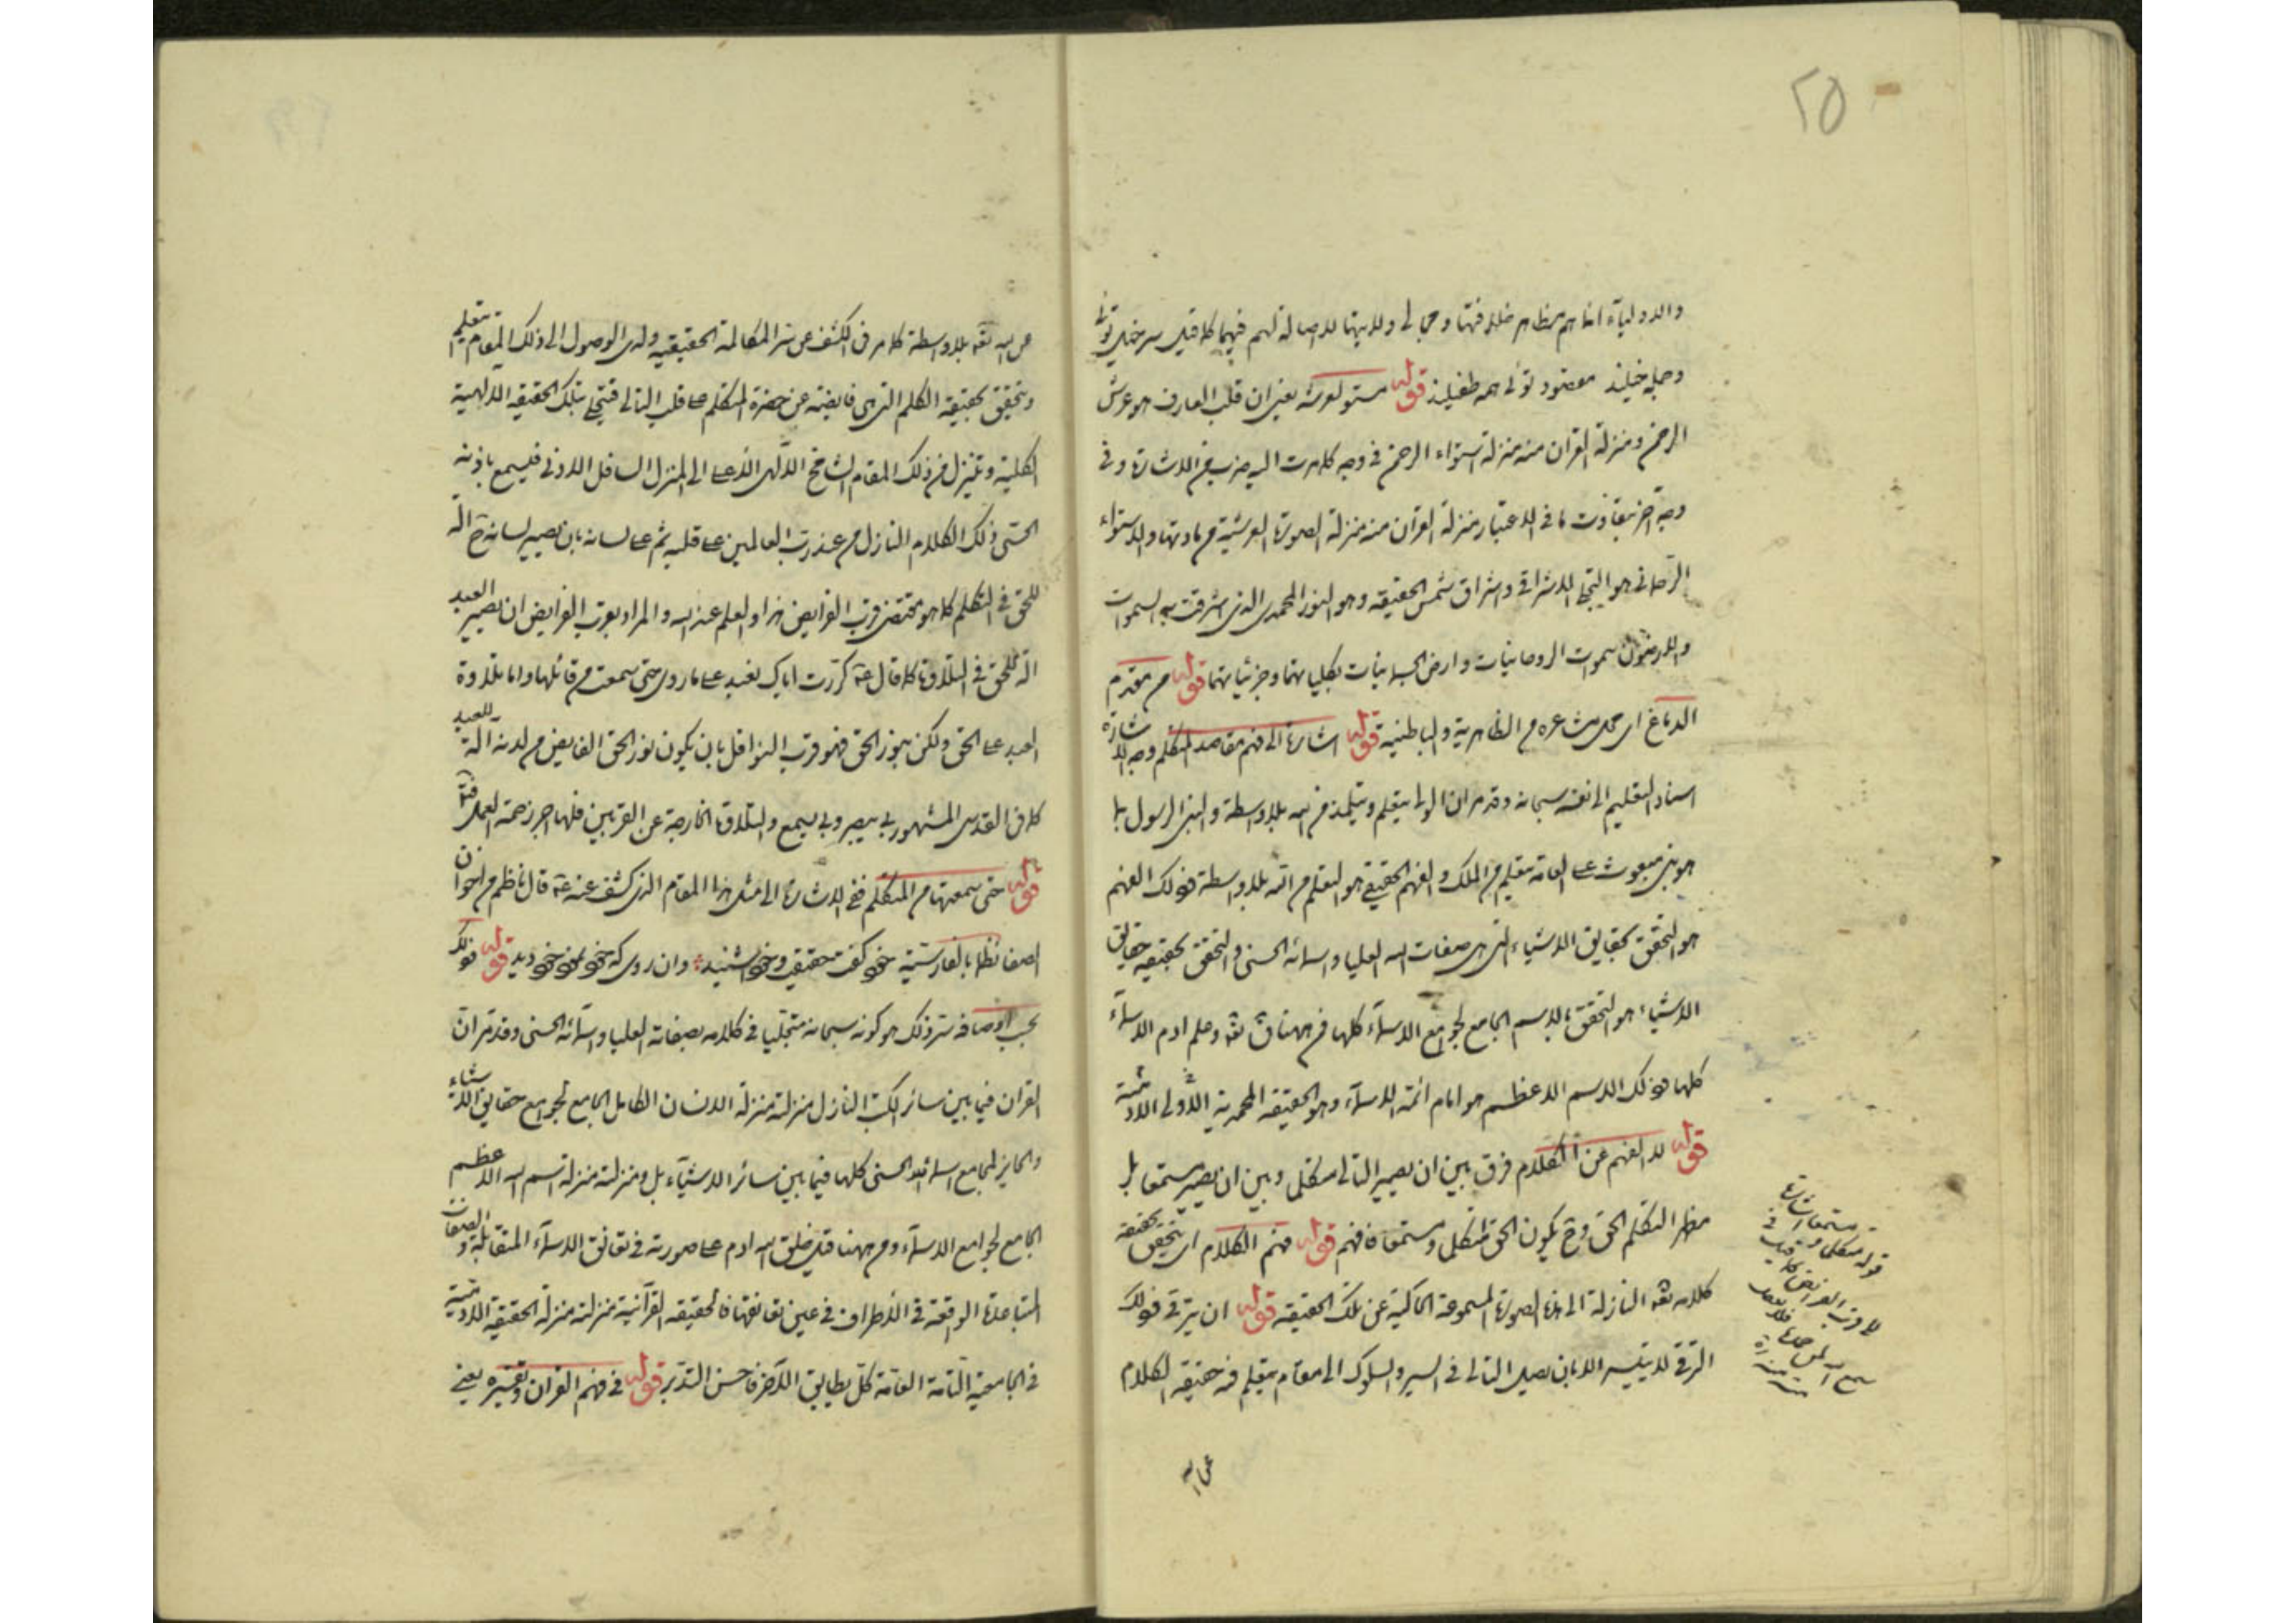 ٢٥
والاولياء انما هم مظاهر خلافتها ومجالي ولايتها لا اصالة لهم فيها كما قيل سر خيل توئى
وجمله خيلند مقصود توئى همه طفيلند قوله مستو لعرشه يعنى ان قلب العارف هو عرش
الرحمن ومنزلة القران منه منزلة استواء الرحمن فى وجه كما مرت اليه ضرب من الاشارة وفى
وجه آخر بتفاوت ما فى الاعتبار منزلة القرآن منه منزلة الصورة العرشية من مادتها والاستواء
الرحمانى هو التجلى الاشراقى واشراق شمس الحقيقة وهو النور المحمدى الذى اشرقت به السموات
والارضون سموات الروحانيات وارض الجسمانيات بكلياتهما وجزئياتهما قوله من مقدم
الدماغ اى محل مشاعره من الظاهرية والباطنية قوله اشارة الى فهم مقاصد المتكلم وجه الاشارة
اسناد التعليم الى نفسه سبحانه وقد مر ان الولى يتعلم ويتلمذ من الله بلا واسطة والنبى الرسول بما
هو نبى مبعوث على العامة يتعلم من الملك والفهم الحقيقى هو التعلم من الله بلا واسطة فذلك الفهم
هو التحقق بحقايق الاشياء التى هى صفات الله العليا واسمائه الحسنى والتحقق بحقيقة حقايق
الاشياء هو التحقق بالاسم الجامع لجوامع الاسماء كلها فمن ههنا قال تعه وعلم ادم الاسماء
كلها فذلك الاسم الاعظم هو امام ائمة الاسماء وهو الحقيقة المحمدية الاولى الادمية
قوله لا الفهم عن الكلام فرق بين ان يصير التالى متكلما وبين ان يصير مستمعا بل
مظهر المتكلم الحق وح يكون الحق متكلما ومستمعا فافهم قوله فهم الكلام اى يتحقق بحقيقة
كلامه تعه النازلة الى هذه الصورة المسموعة الحاكية عن تلك الحقيقة قوله ان يترقى فذلك
الترقى لا يتيسر الا بان يصل التالى فى السير والسلوك الى مقام يتعلم فيه حقيقة الكلام
قوله متكلما ومستمعا اشارة
عن الله
عن الله تعه بلا واسطة كما مر فى الكشف عن سر المكالمة الحقيقية ولدى الوصول الى ذلك المقام يتعلم
ويتحقق بحقيقة الكلم التى هى فايضة عن حضرة المتكلم على قلب التالى فيتجلى بتلك الحقيقة الالهية
الكلية ويتنزل من ذلك المقام الشامخ الالهى الاعلى الى المنزل السافل الادنى فيسمع باذنه
الحسى ذلك الكلام النازل من عند رب العالمين على قلبه ثم على لسانه بان يصير لسانه ح الة
للحق فى التكلم كما هو مقتضى قرب الفرايض هذا والعلم عند الله والمراد بقرب الفرايض ان يصير العبد
الة للحق فى التلاوة كما قال ع كررت اياك نعبد على ما روى حتى سمعت من قائلها واما تلاوة
العبد على الحق ولكن بنور الحق فهو قرب النوافل بان يكون نور الحق الفايض من لدنه الة للعبد
كما فى القدسى المشهور بى يبصر وبى يسمع والتلاوة الخارجة عن القربين فلها اجر زحمة العمل فقه
قوله حتى سمعتها من المتكلم ففى الاشارة الى مثل هذا المقام الذى كشف عنه ع قال ناظم من اخوان
الصفا نظما بالفارسية خود كفت حقيقت وخود اشنيد وان روى كه خود نمود خود ديد قوله فذلك
بحسب اوصافه سر ذلك هو كونه سبحانه متجليا فى كلامه بصفاته العليا واسمائه الحسنى وقد مر ان
القران فيما بين سائر الكتب النازل منزلته منزلة الانسان الكامل الجامع لجوامع حقايق الاشياء
والحايز لمجامع اسمائه الحسنى كلها فيما بين سائر الاشياء بل ومنزلته منزلة اسم الله الاعظم
الجامع لجوامع الاسماء ومن ههنا قيل خلق الله ادم على صورته فى تعانق الاسماء المتقابلة والصفات
المتباعدة الواقعة فى الاطراف فى عين تعانقها فالحقيقة القرآنية منزلتها منزلة الحقيقة الادمية
فى الجامعية التامة العامة كل يطابق الآخر فاحسن التدبر قوله فى فهم القران وتفسيره يعنى